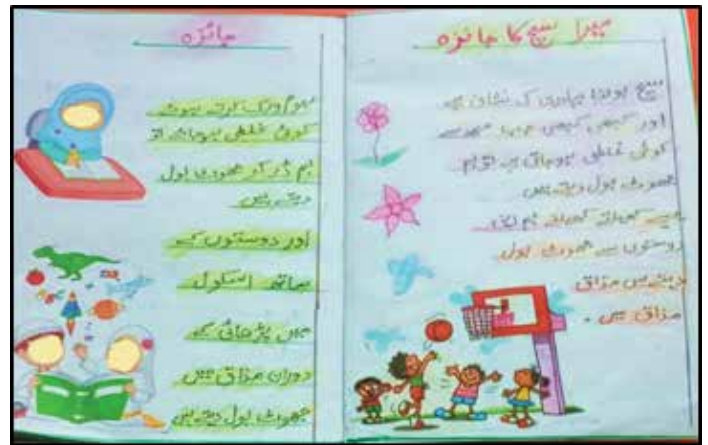 میرا سچ کا جائزہ
سچ بولنا بہادری کی نشان ہے
اور کبھی کبھی جب مجھ سے
کوئی غلطی ہوجاتی ہے تو ہم
جھوٹ بول دیتے ہیں
جیسے کھیلتے کھیلتے ہم اپنی
دوستوں سے جھوٹ بول
دیتے ہیں مذاق
مذاق میں ۔
جائزہ
ہوم ورک کرتے ہوئے
کوئی غلطی ہوجائے تو
ہم ڈر کر جھوٹ بول
دیتے ہیں
اور دوستوں کے
ساتھ اسکول
میں پڑھائی کے
دوران مذاق میں
جھوٹ بول دیتے ہیں